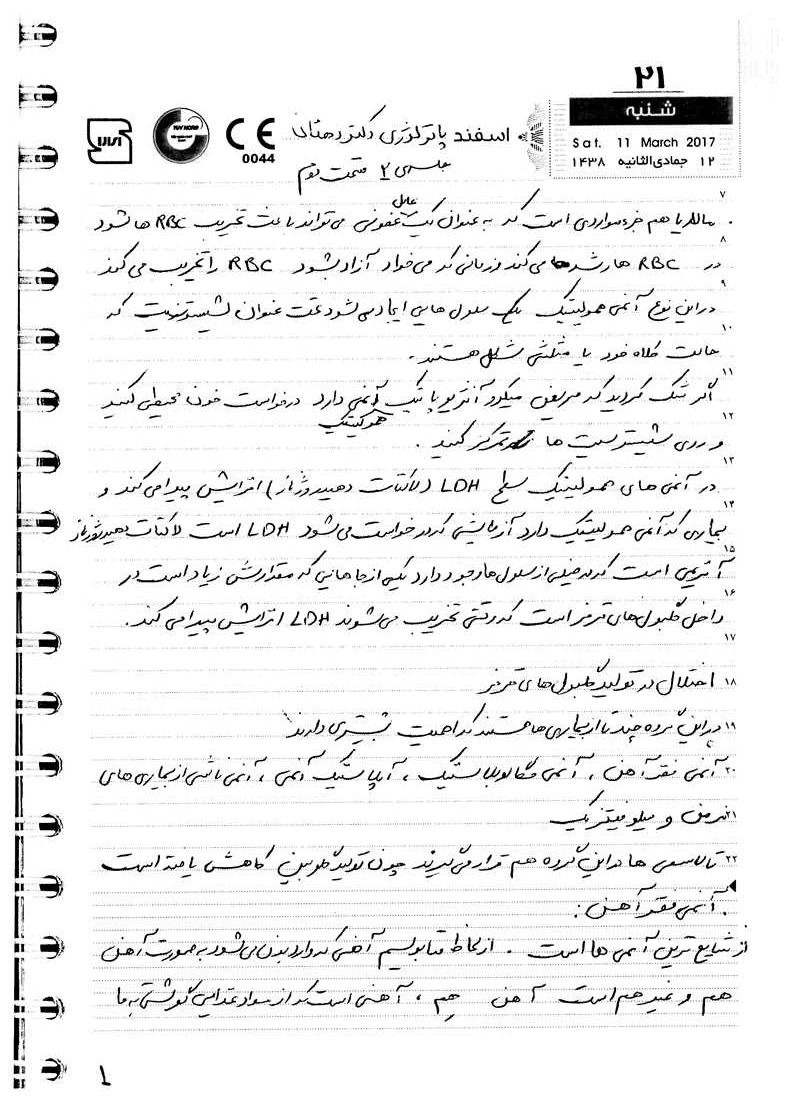 ۲۱
شنبه
Sat. 11 March 2017
۱۲ جمادی الثانیه ۱۴۳۸
TUV NORD
CE
0044
اسفند پاتولوژی دکتر دهقان
جلسه‌ی ۲ قسمت دوم
۷
. مالاریا هم جزء مواردی است که به عنوان یک عامل عفونی می تواند باعث تخریب RBC ها شود
۸
در RBC ها رشد می کند و زمانی که می خواد آزاد بشود RBC را تخریب می کند
۹
در این نوع آنمی همولیتیک یک سلول هایی ایجاد می شود تحت عنوان شیستوسیت که
۱۰
حالت کلاه خود یا مثلثی شکل هستند.
۱۱
اگر شک کردید که مریض میکرو آنژیوپاتیک همولیتیک آنمی دارد درخواست خون محیطی کنید
۱۲
و روی شیستوسیت ها تمرکز کنید.
۱۳
در آنمی های همولیتیک سطح LDH (لاکتات دهیدروژناز) افزایش پیدا می کند و
۱۴
بیماری که آنمی همولیتیک دارد آزمایشی که درخواست می شود LDH است لاکتات دهیدروژناز
۱۵
آنزیمی است که در خیلی از سلول ها وجود دارد یکی از جاهایی که مقدارش زیاد است در
۱۶
داخل گلبول های قرمز است که وقتی تخریب می شوند LDH افزایش پیدا می کند.
۱۷
۱۸ اختلال در تولید گلبول های قرمز
۱۹ در این گروه چند تا از بیماری ها هستند که اهمیت بیشتری دارند
۲۰ آنمی فقر آهن، آنمی مگالوبلاستیک، آپلاستیک آنمی، آنمی ناشی از بیماری های
۲۱ مزمن و میلوفیتزیک
۲۲ تالاسمی ها در این گروه هم قرار می گیرند چون تولید گلوبین کاهش یافته است
. آنمی فقر آهن:
از شایع ترین آنمی ها است . از لحاظ متابولیسم آهنی که وارد بدن می شود به صورت آهن
هم و غیر هم است آهن هِم، آهنی است که از مواد غذایی گوشتی به ما
۱